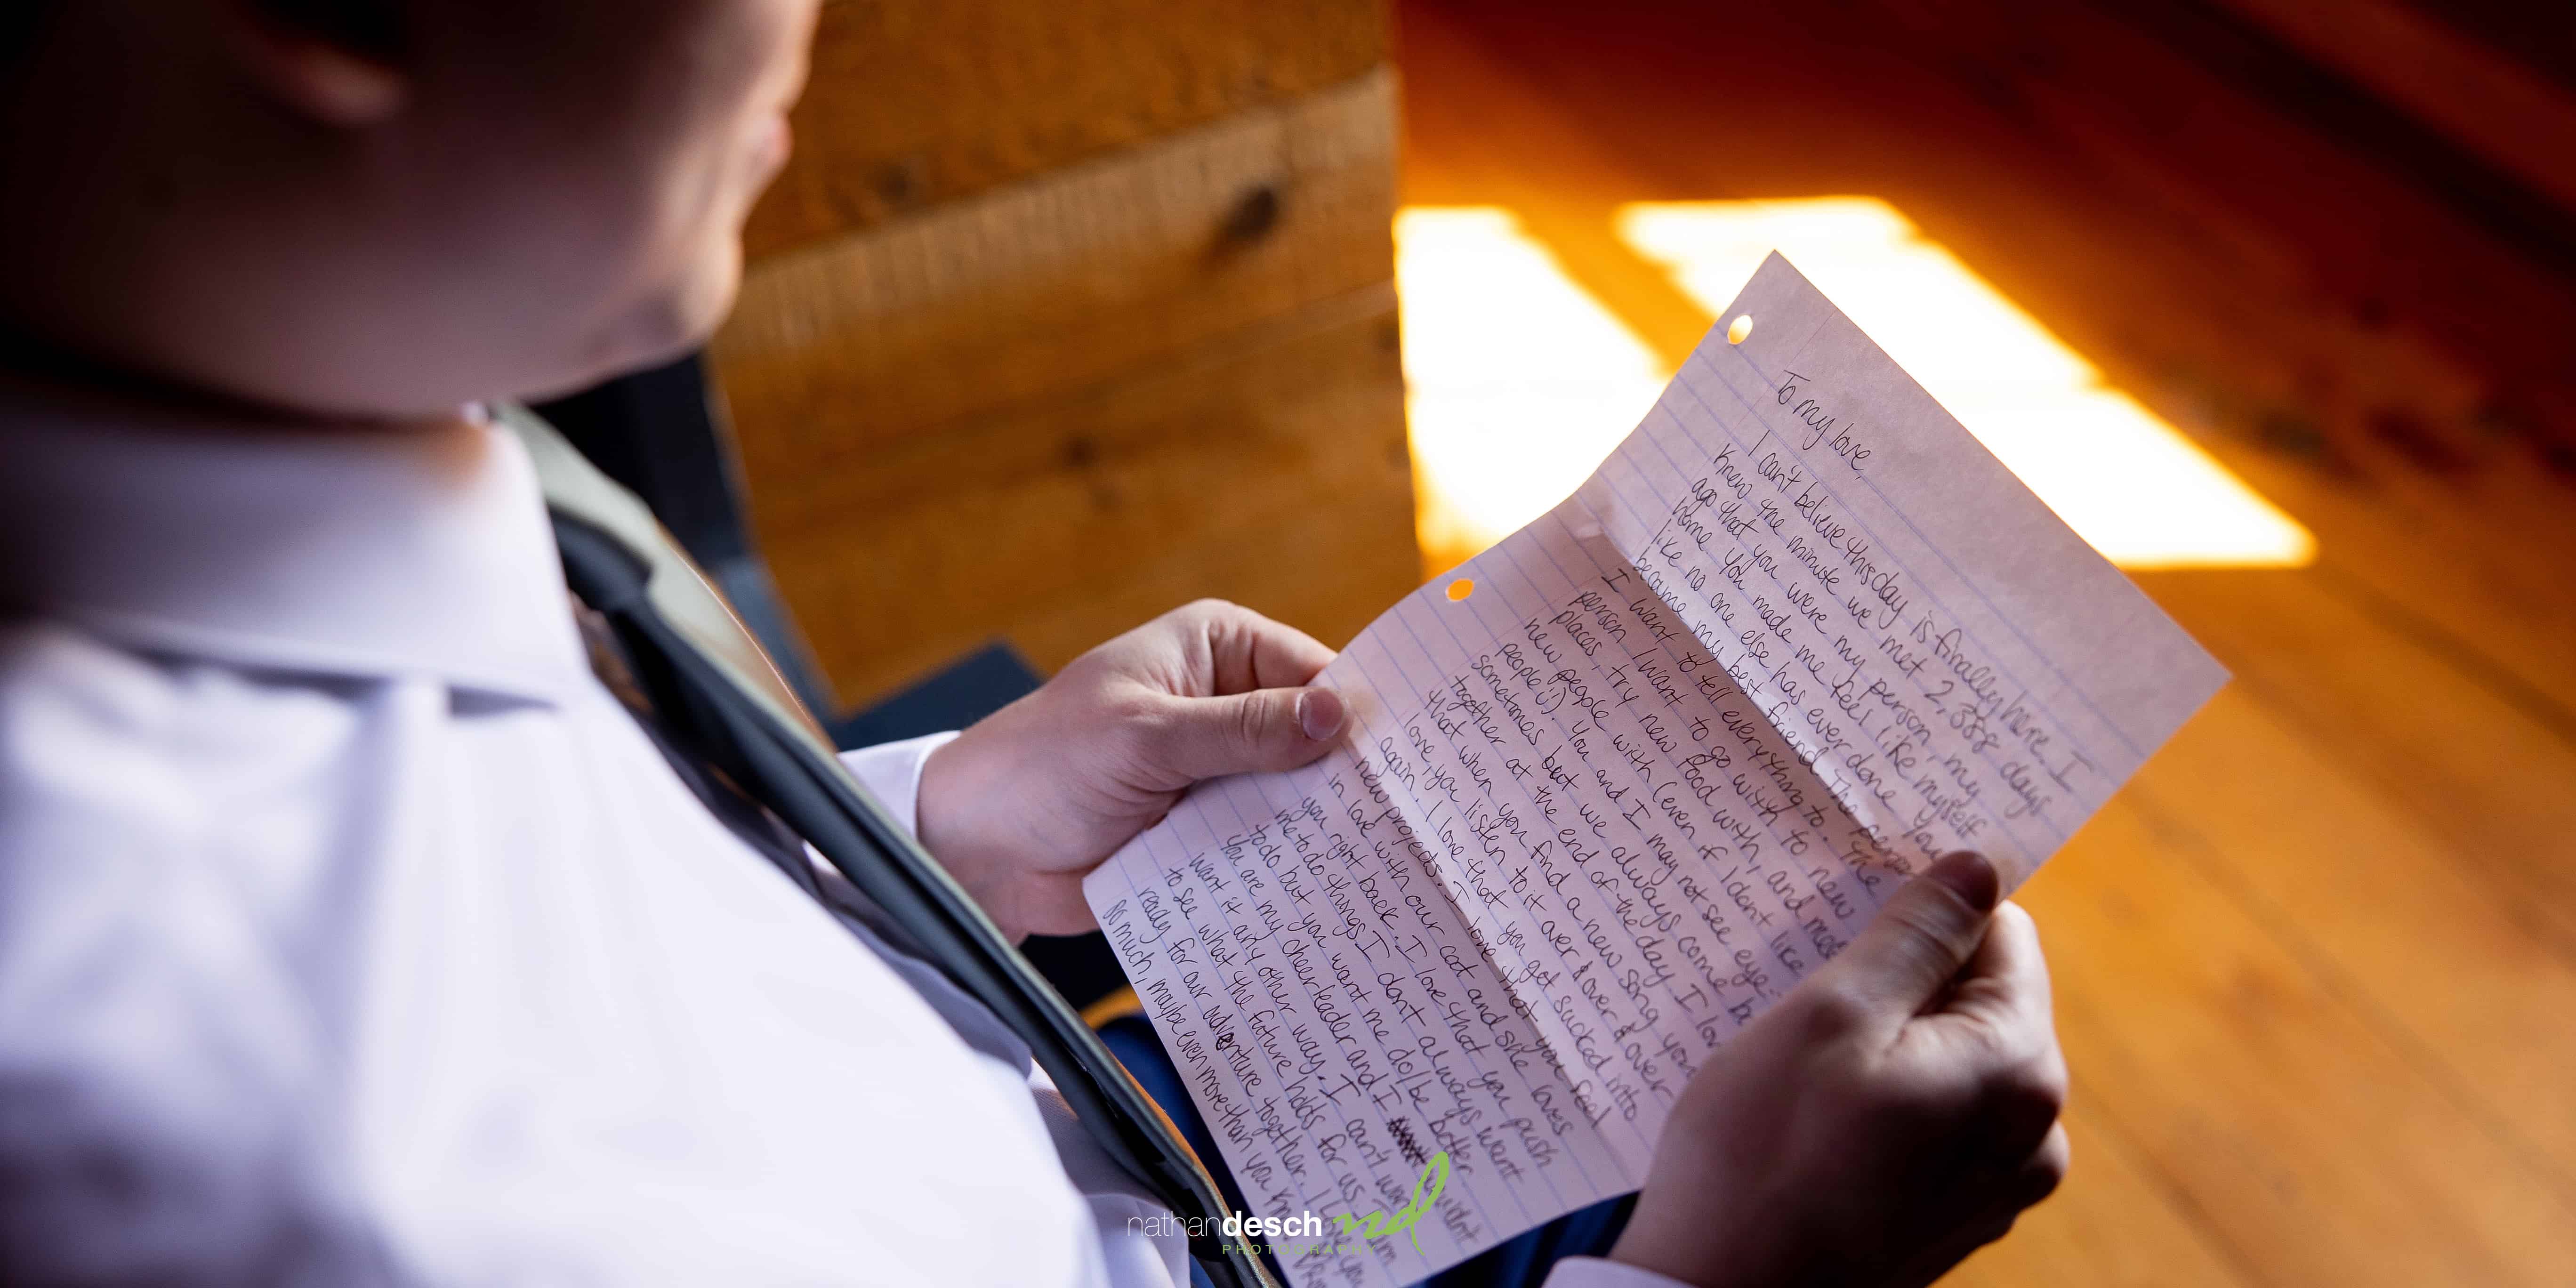 To my love,
I can't believe this day is finally here. I
knew the minute we met 2,388 days
ago that you were my person, my
home. You made me feel like myself
like no one else has ever done. You
became my best friend. The person
I want to tell everything to. The
person I want to go with to new
places, try new food with, and meet
new people with (even if I dont like
people :)). You and I may not see eye-
sometimes but we always come
together at the end of the day. I lo
that when you find a new song you
love, you listen to it over & over & over
again. I love that you get sucked into
new projects. I love that you feel
in love with our cat and she loves
you right back. I love that you push
me to do things I don't always want
to do but you want me do/be better
You are my cheerleader and I wouldnt
want it any other way. I can't wait
to see what the future holds for us.
ready for our adventure together. I love you
so much, maybe even more than you
nathandesch nd
PHOTOGRAPHY